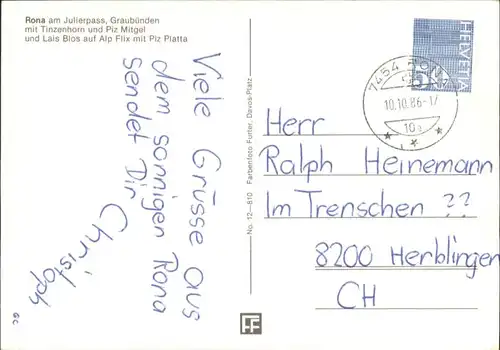 Rona am Julierpass, Graubünden
mit Tinzenhorn und Piz Mitgel
und Lais Blos auf Alp Flix mit Piz Platta
Viele Grüsse aus
dem sonnigen Rona
sendet Dir
Christoph
No. 12–810 Farbenfoto Furter, Davos-Platz
HELVETIA
7454 RONA
10.10.86-17
Herr
Ralph Heinemann
Im Trenschen ??
8200 Herblingen
CH
FF